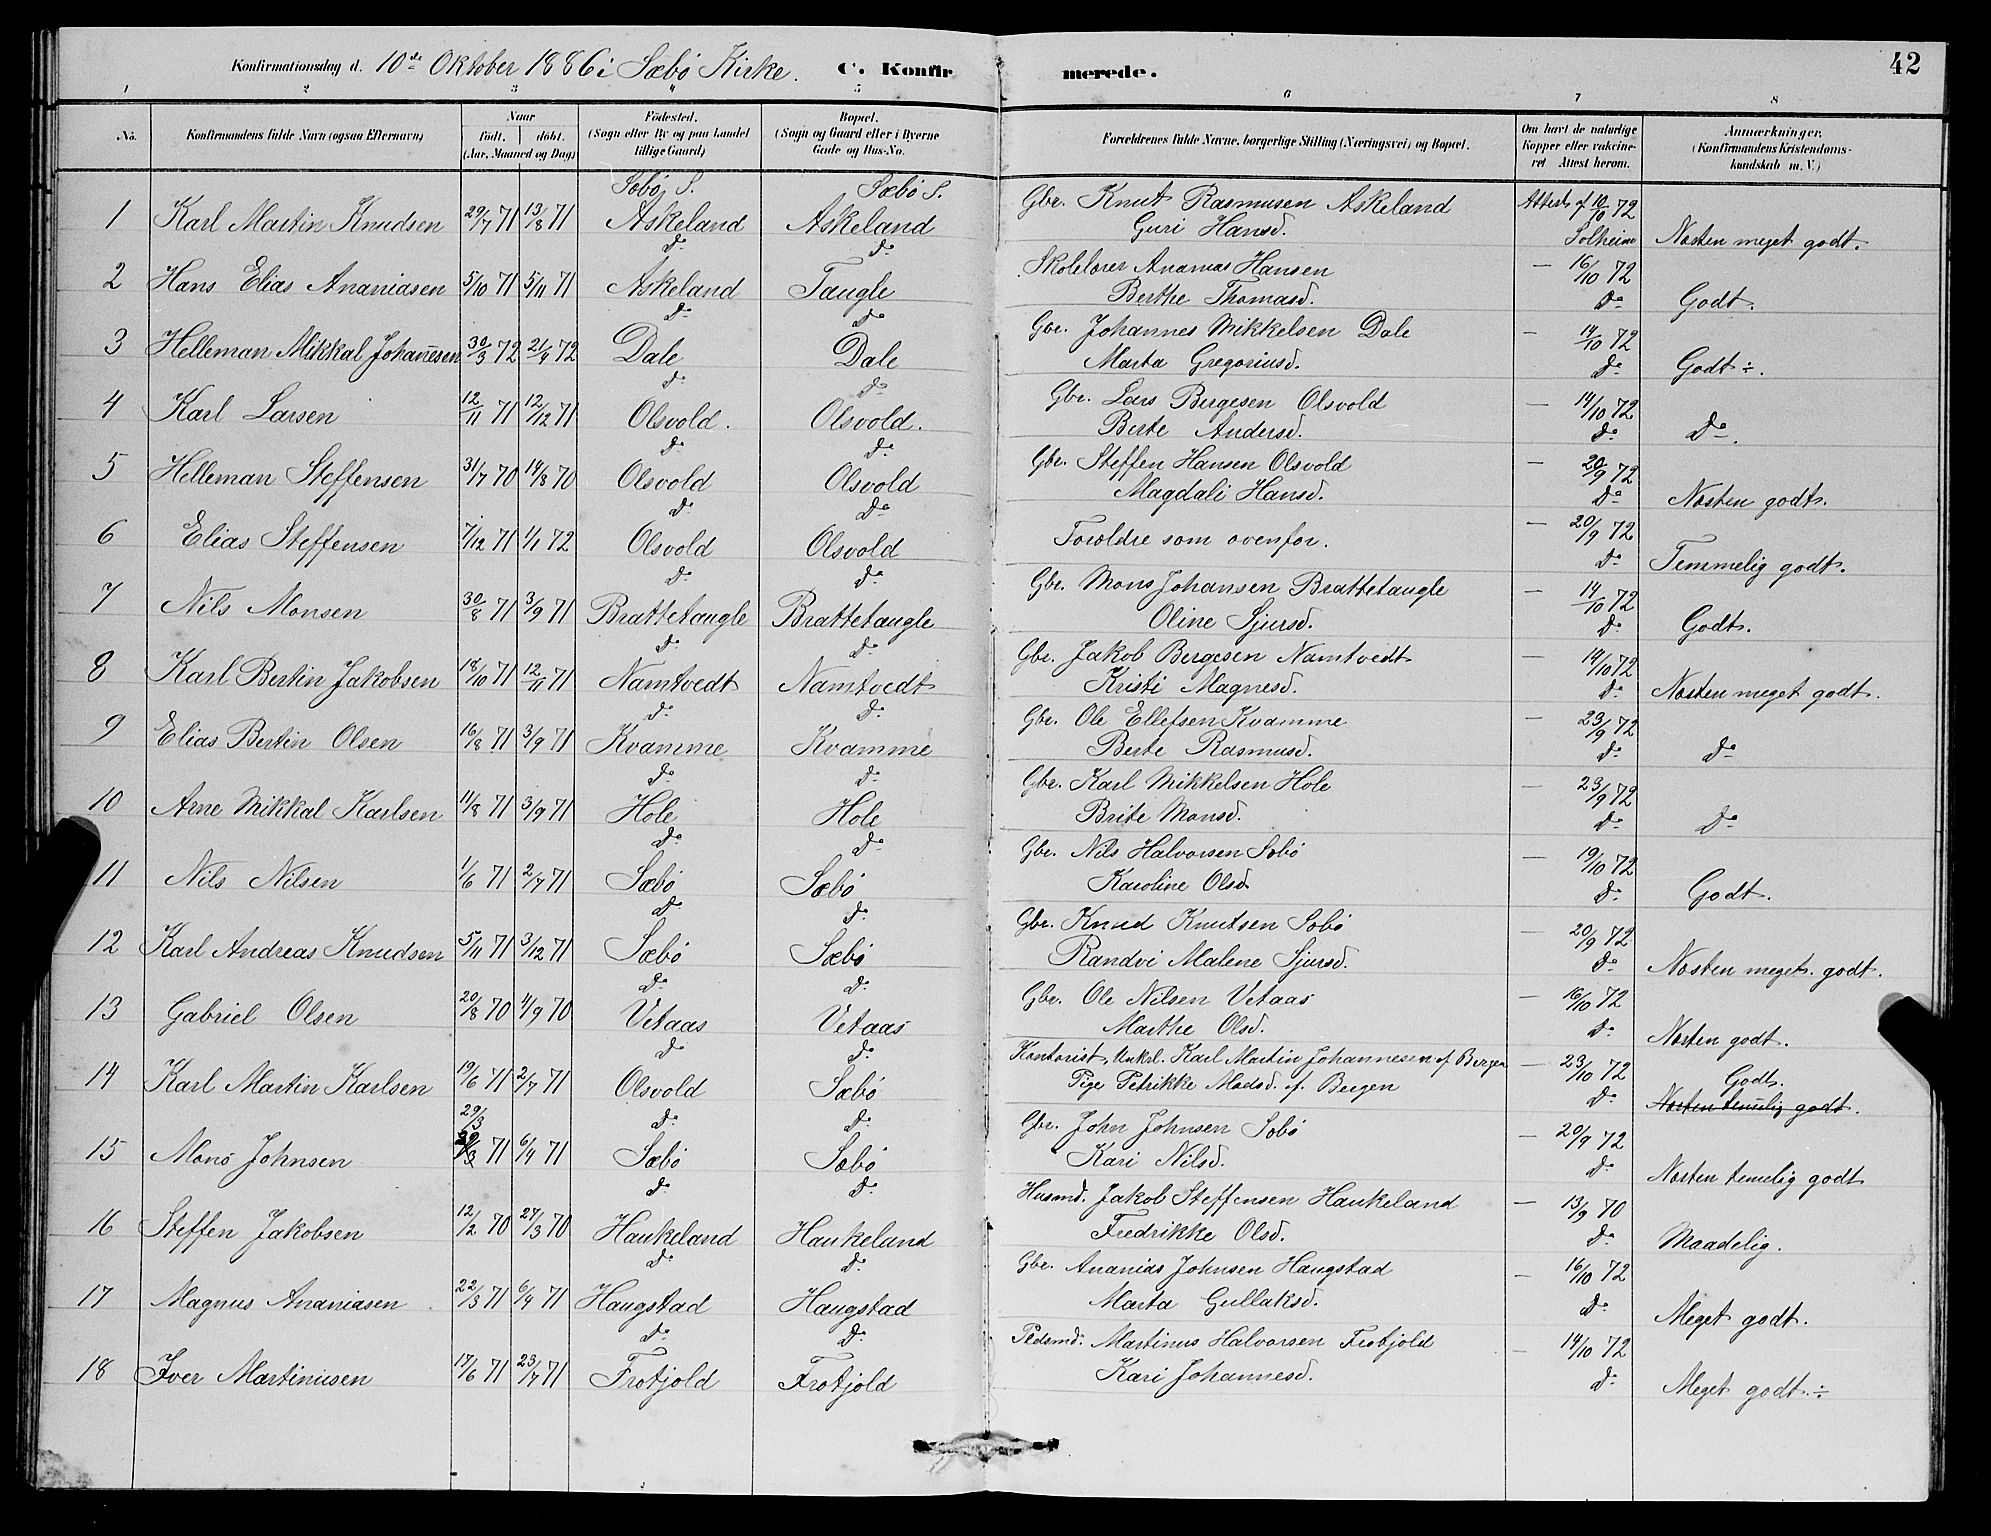 42
Konfirmationsdag d. 10de Oktober 1886 i Sæbö Kirke. C. Konfirmerede.
1 2 3 4 5 6 7 8
No. Konfirmandens fulde Navn (ogsaa Efternavn) Naar födt. döbt. (Aar, Maaned og Dag) Födested. (Sogn eller By og paa Landet tillige Gaard) Bopæl. (Sogn og Gaard eller i Byerne Gade og Hus-No. Forældrenes fulde Navne, borgerlige Stilling (Næringsvei) og Bopæl. Om havt de naturlige Kopper eller vakcineret Attest herom. Anmærkninger. (Konfirmandens Kristendomskundskab m. V.)
Sæbö S. Sæbö S.
1 Karl Martin Knudsen 29/7 71 13/8 71 Askeland Askeland Gbr. Knut Rasmusen Askeland Attest af 10/10 72
Guri Hansd. Solheim Næsten meget godt.
do do
2 Hans Elias Ananiasen 5/10 71 5/11 71 Askeland Taugle Skolelærer Ananias Hansen — 16/10 72
Berthe Thomasd. do Godt.
do do
3 Helleman Mikkal Johannesen 30/3 72 21/4 72 Dale Dale Gbr. Johannes Mikkelsen Dale — 14/10 72
Marta Gregoriusd. do Godt ÷.
do do
4 Karl Larsen 12/11 71 12/12 71 Olsvold. Olsvold. Gbr. Lars Bergesen Olsvold — 14/10 72
Berte Andersd. do do.
do do
5 Helleman Steffensen 31/7 70 14/8 70 Olsvold Olsvold Gbr. Steffen Hansen Olsvold — 20/9 72
Magdali Hansd. do Næsten godt.
do do
6 Elias Steffensen 7/12 71 1/1 72 Olsvold Olsvold Forældre som ovenfor. — 20/9 72
do Temmelig godt.
do do
7 Nils Monsen 30/8 71 3/9 71 Brattetaugle Brattetaugle Gbr. Mons Johansen Brattetaugle — 14/10 72
Oline Sjursd. do Godt.
do do
8 Karl Bertin Jakobsen 18/10 71 12/11 71 Namtvedt Namtvedt Gbr. Jakob Bergesen Namtvedt — 14/10 72
Kristi Magnesd. do Næsten meget godt.
do do
9 Elias Bertin Olsen 16/8 71 3/9 71 Kvamme Kvamme Gbr. Ole Ellefsen Kvamme — 23/9 72
Berte Rasmusd. do do
do do
10 Arne Mikkal Karlsen 11/8 71 3/9 71 Hole Hole Gbr. Karl Mikkelsen Hole — 23/9 72
Brite Monsd. do do
do do
11 Nils Nilsen 1/6 71 2/7 71 Sæbö Sæbö Gbr. Nils Halvorsen Sæbö — 19/10 72
Karoline Olsd. do Godt.
do do
12 Karl Andreas Knudsen 5/11 71 3/12 71 Sæbö Sæbö Gbr. Knud Knutsen Sæbö — 20/9 72
Randvi Malene Sjursd. do Næsten meget godt.
do do
13 Gabriel Olsen 20/8 70 4/9 70 Vetaas Vetaas Gbr. Ole Nilsen Vetaas — 16/10 72
Marthe Olsd. do Næsten godt.
do do
14 Karl Martin Karlsen 19/6 71 2/7 71 Olsvold Sæbö Kontorist, Unkrl. Karl Martin Johannesen af Bergen — 23/10 72 Godt.
Pige Petrikke Madsd. af Bergen do Næsten temelig godt.
29/3 do do
15 Mons Johnsen 71 6/4 71 Sæbö Sæbö Gbr. John Johnsen Sæbö — 20/9 72
Kari Nilsd. do Næsten temelig godt
do do
16 Steffen Jakobsen 12/2 70 27/3 70 Haukeland Haukeland Husmd. Jakob Steffensen Haukeland — 13/9 70
Fredrikke Olsd. do Maadelig.
do do
17 Magnus Ananiasen 22/3 71 6/4 71 Haugstad Haugstad Gbr. Ananias Johnsen Haugstad — 16/10 72
Marta Gullaksd. do Meget godt.
do do
18 Iver Martinusen 17/6 71 23/7 71 Frotjold Frotjold Pldsmd. Martinus Halvorsen Frotjold — 14/10 72
Kari Johannesd. do Meget godt ÷